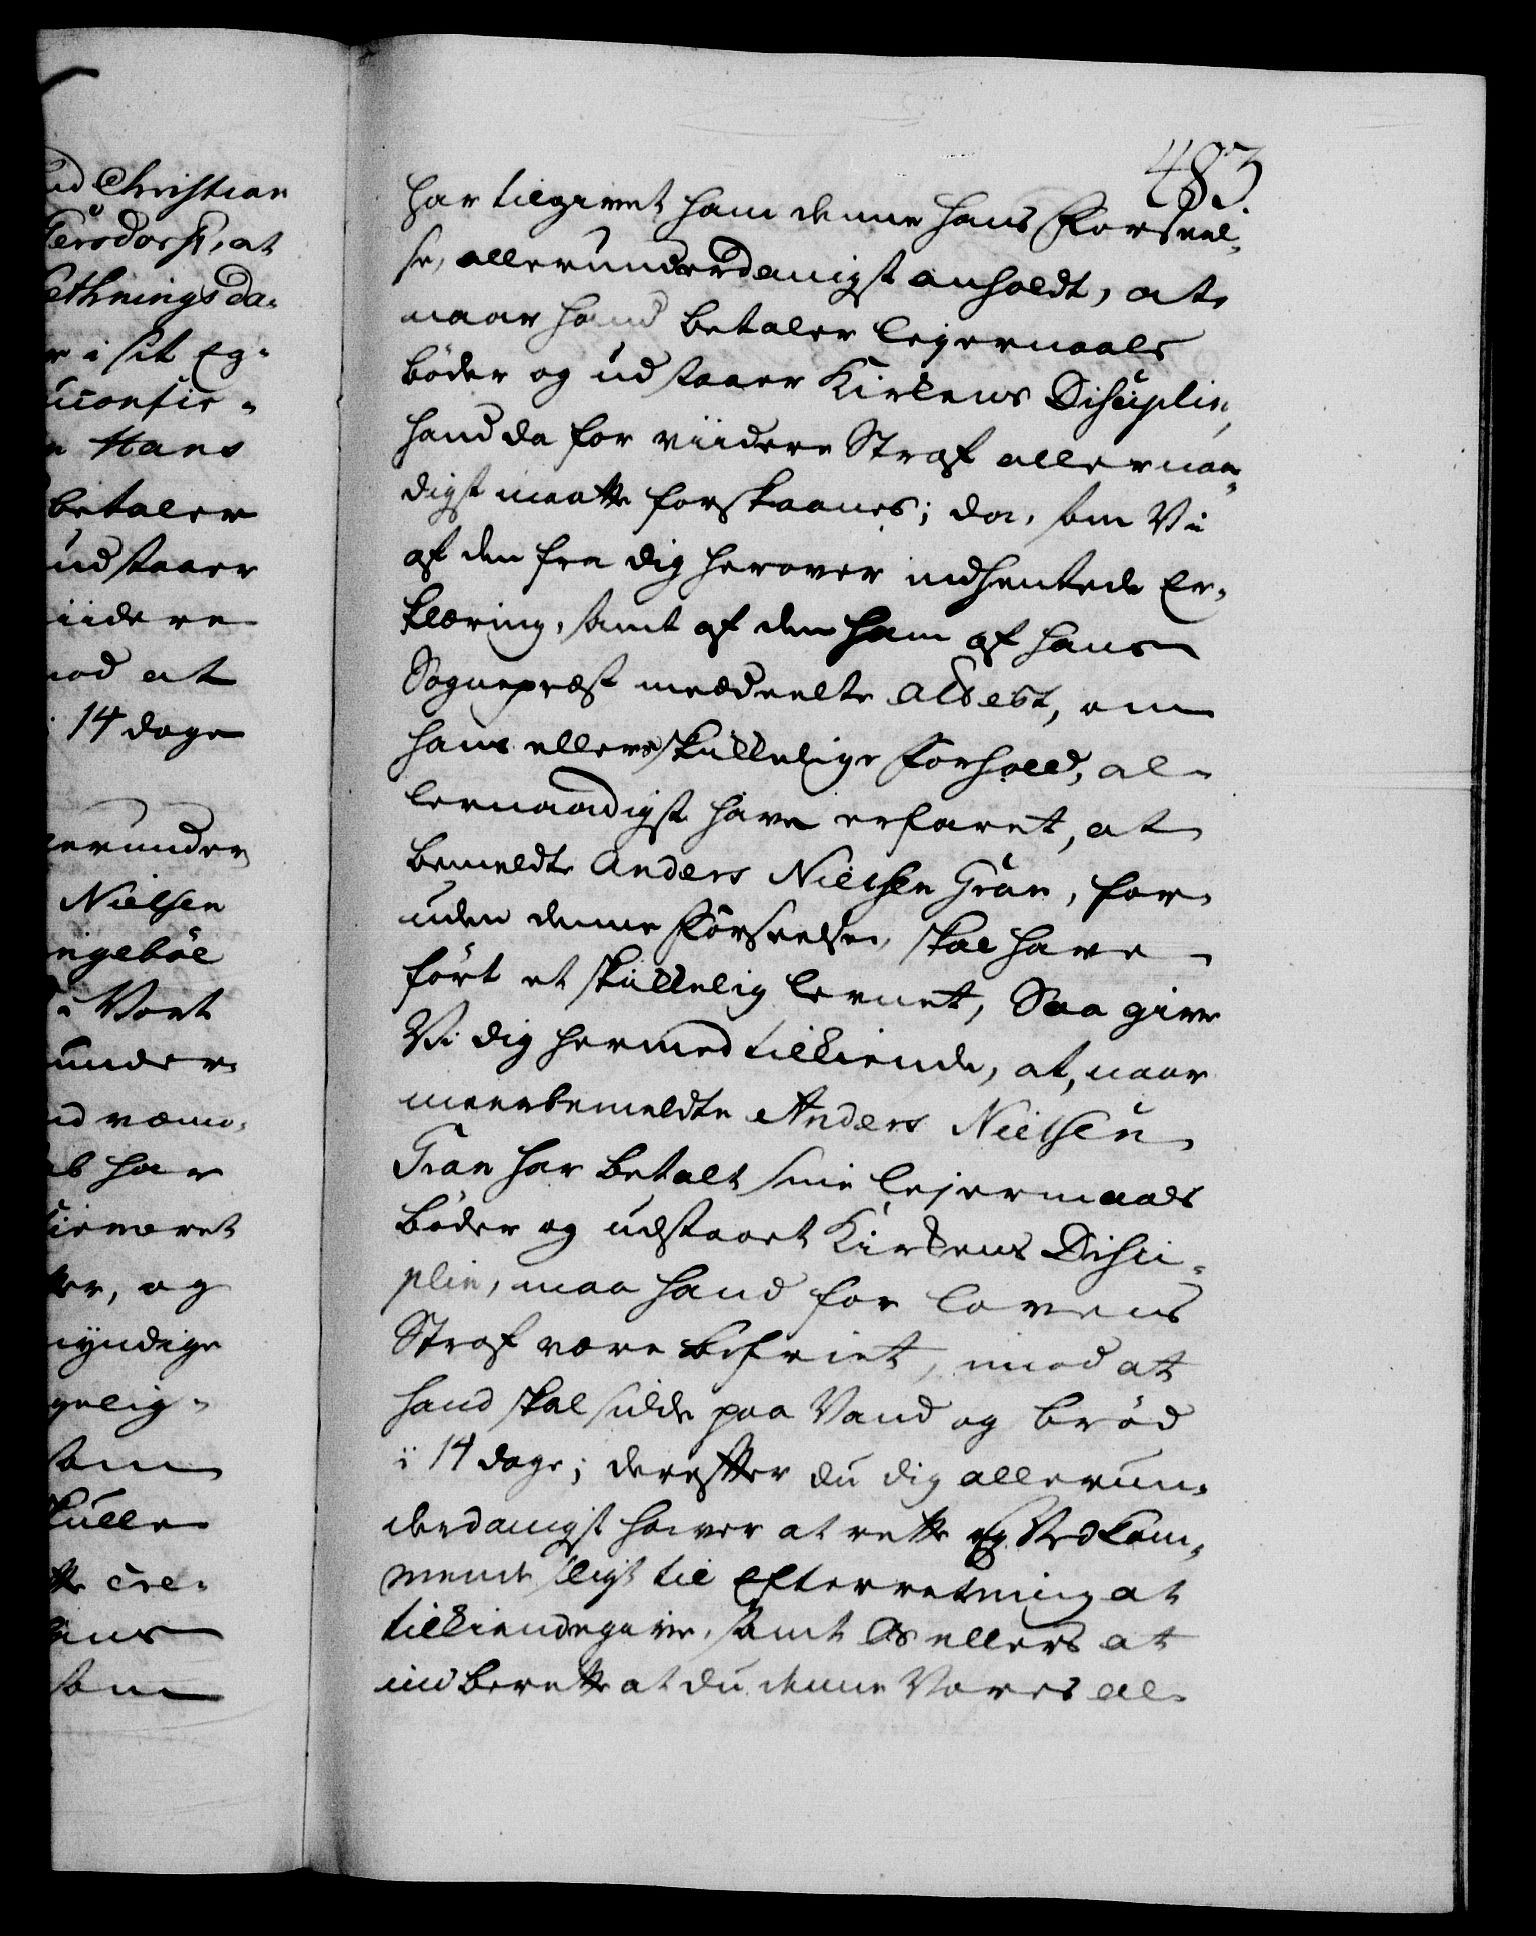 ud Christian
Gersdorff, at
ethnings Da-
r i sit Eg-
Hans
betaler
udstaaer
viidere
mod at
i 14 dage
lerunder
Nielsen
ngebøl
i Vort
under-
har
været
ter, og
myndige
gelig-
som
skulle
som
483.
har tilgivet ham denne hans Forseel-
se, allerunderdanigst anholdt, at,
naar hand betaler Lejermaals
bøder og udstaaer Kirkens Disciplin,
hand da for viidere Straf allernaa-
digst maatte forskaanes; da, som Vi
af den fra dig herover indhentede Er-
klæring, samt af den ham af hans
Sognepræst meddeelte Attest, om
hans ellers skikkelige Forhold, al-
lernaadigst have erfaret, at
bemeldte Anders Nielsen Gran, for-
uden denne Forseelse, skal have
ført et skikkelig levnet, Saa give
Vi dig hermed tilkiende, at, naar
meerbemeldte Anders Nielsen
Gran har betalt sine Lejermaals
bøder og udstaaet Kirkens Disci-
plin, maa hand for Lovens
Straf være befriet, imod at
hand skal sidde paa Vand og brød
i 14 dage; derefter du dig allerun-
derdanigst haver at rette og Vedkom-
mende sligt til Efterretning at
tilkiendegive, samt Os ellers at
indberette at du denne Vores al-